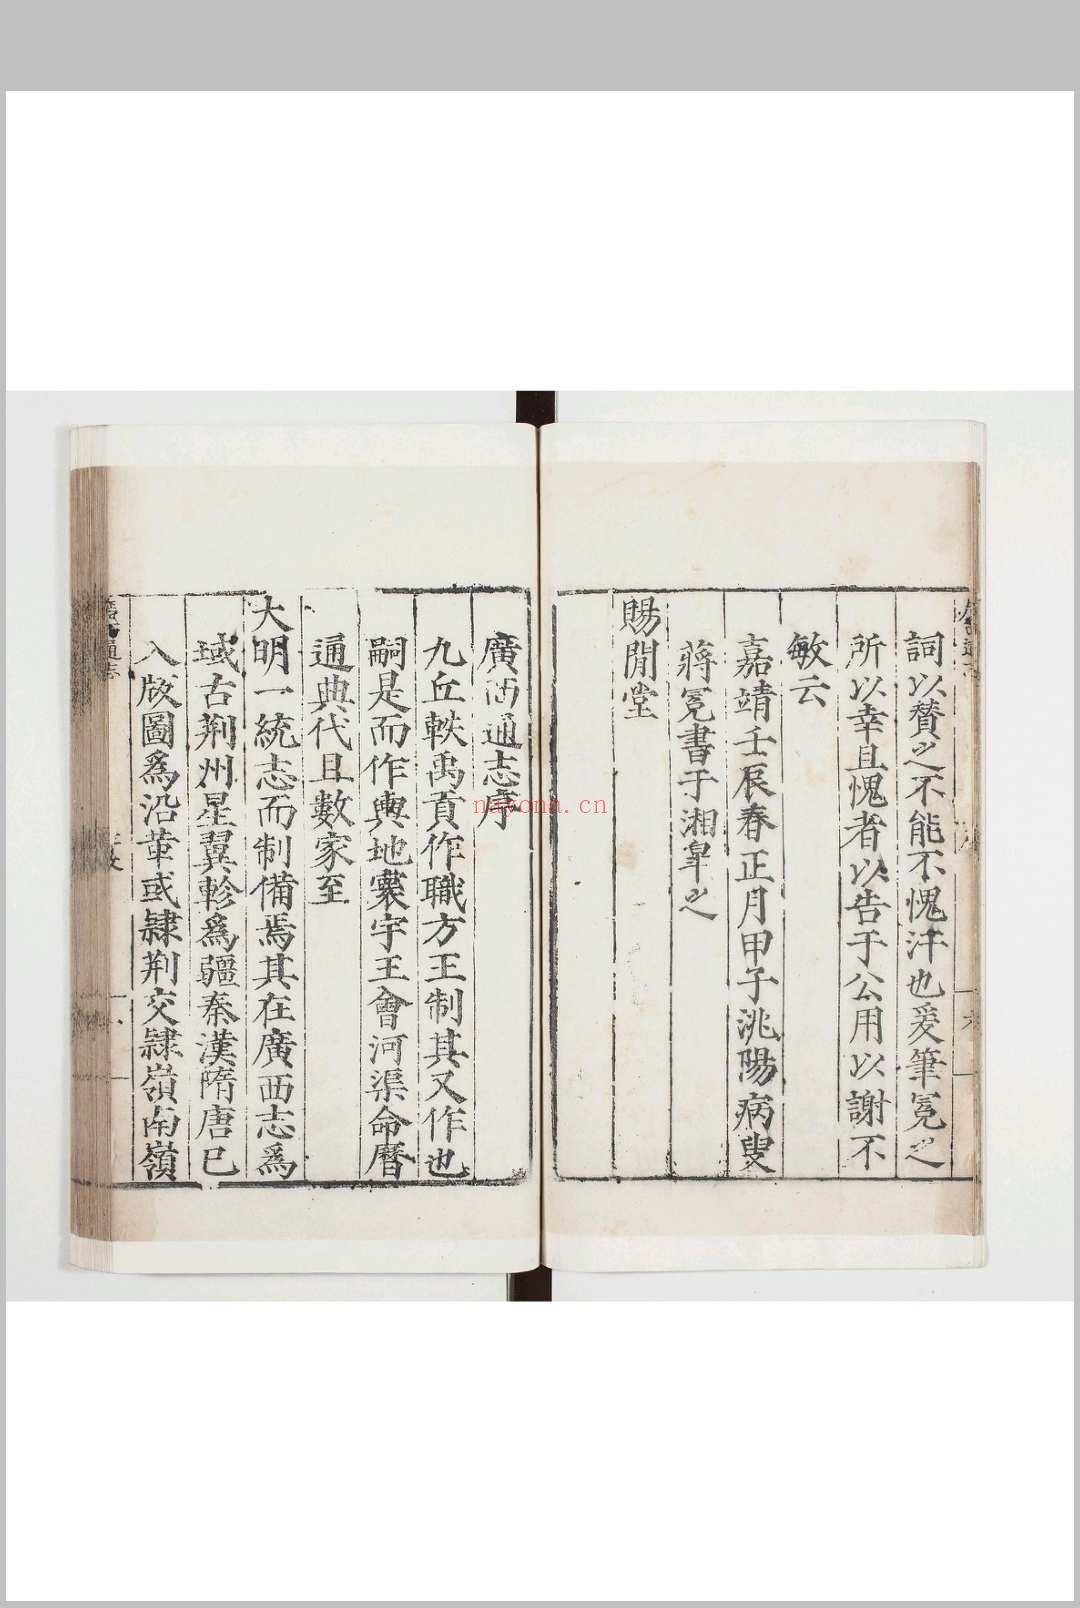 詞以賛之不能不愧汗也爰筆冕之
所以幸且愧者以告于公用以謝不
敏云
嘉靖壬辰春正月甲子洮陽病叟
蔣冕書于湘皐之
賜閒堂
廣西通志序
九丘軼禹貢作職方王制其又作也
嗣是而作輿地寰宇王會河渠命曆
通典代且數家至
大明一統志而制備焉其在廣西志爲
域古荆州星翼軫爲疆秦漢隋唐已
入版圖爲沿革或隷荆交隷嶺南嶺
廣西通志
nayona.cn